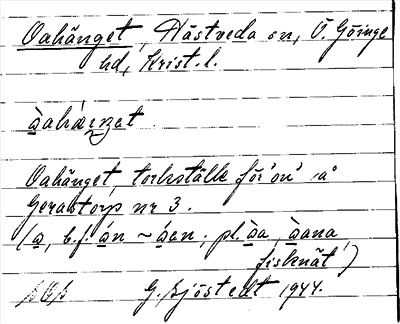 Oahänget, Hästveda sn, Ö. Göinge
hd, Krist. l.
òahäŋet.
Oahänget, torkställe för 'on' på
Gerastorp nr 3.
(a̲, b.f. án ~ áen; pl. òa, òana,
fisknät)
G. Sjöstedt 1944.